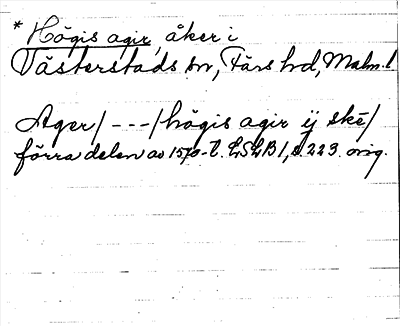 * Högis agir, åker i
Västerstads sn, Färs hd, Malm. l
Ager / --- / högis agir ij skē /
förra delen av 1570-t. LSLB 1, s. 223. orig.